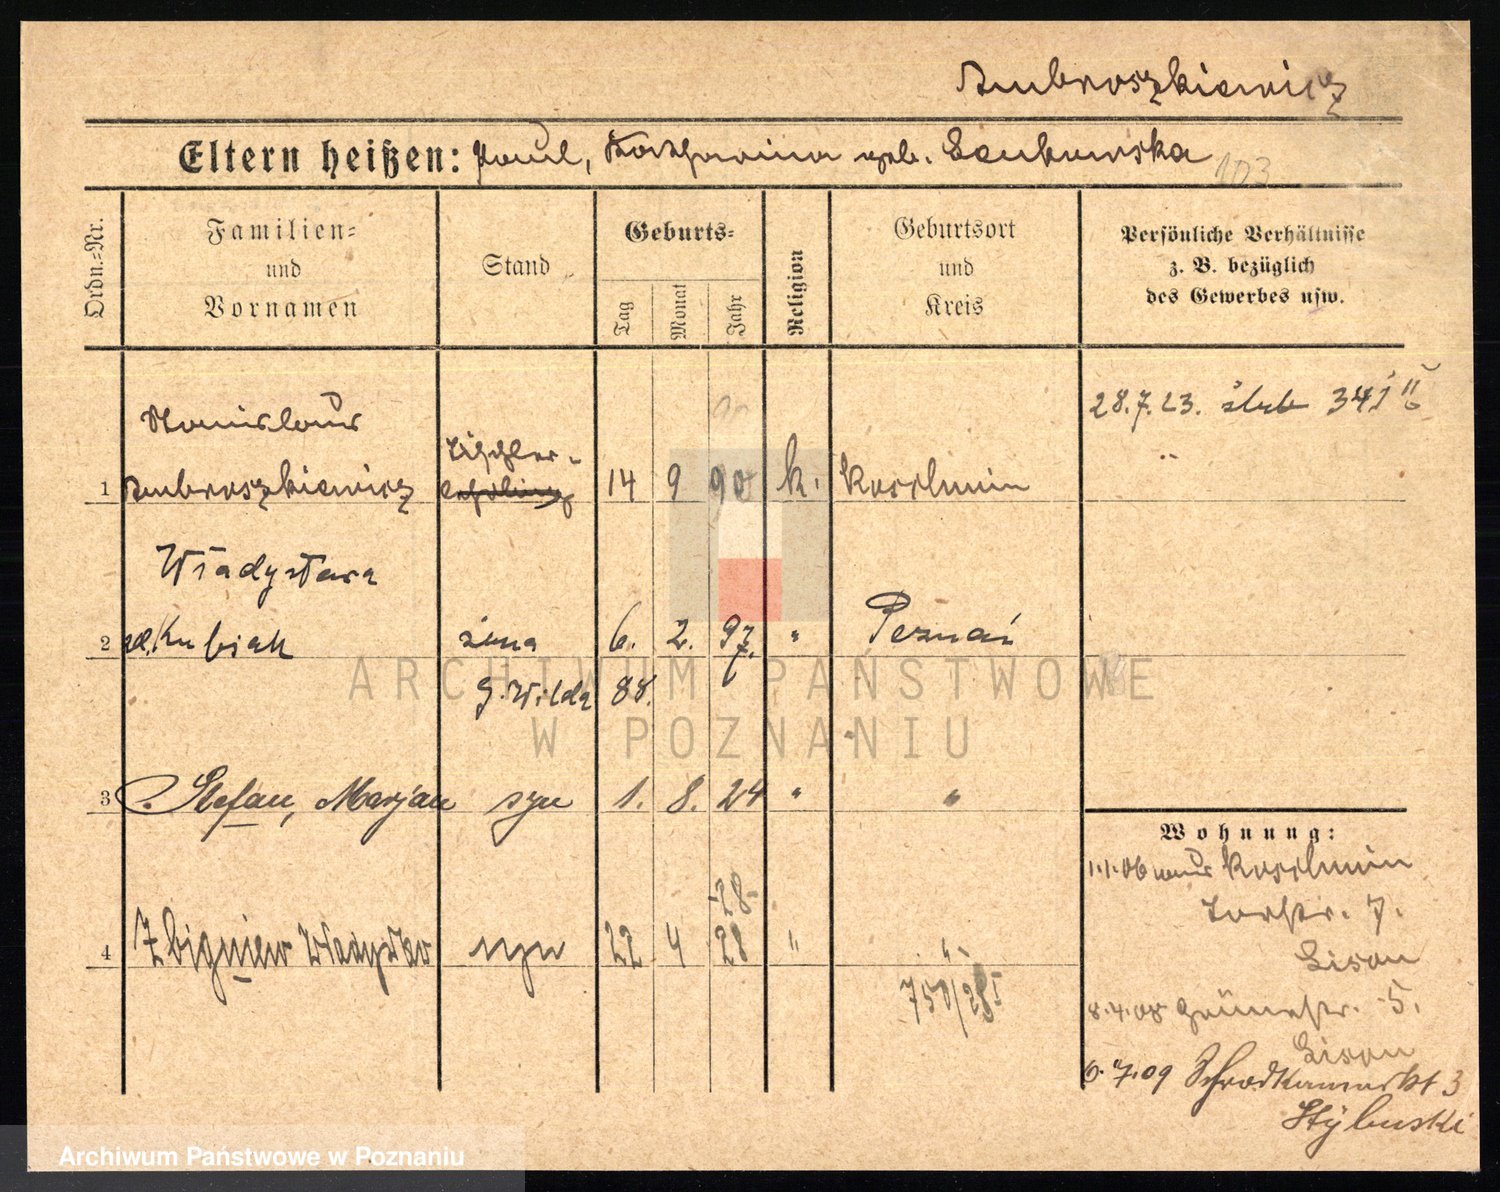 Ambroszkiewicz
Eltern heißen: Paul, Katharina geb.
103
Ordn.-Nr.
Familien-
und
Vornamen
Stand
Geburts-
Tag
Monat
Jahr
Religion
Geburtsort
und
Kreis
Persönliche Verhältnisse
z. B. bezüglich
des Gewerbes usw.
28.7.23.
Stanislaus
Tischler-
1 Ambroszkiewicz 14 9 90 k. Koschmin
Władysława
2 Kubiak żona 6. 2. 97. " Poznań
G. Wilda 88.
3 Stefan, Marjan syn 1. 8. 24 " "
28
4 Zbigniew Władysław syn 22 4 28 " "
750/28
Wohnung:
1.1.06 Koschmin
7.
8.4.08 Grünestr. 5.
6.7.09 Schrodkamarkt 3
ARCHIWUM PAŃSTWOWE
W POZNANIU
Archiwum Państwowe w Poznaniu